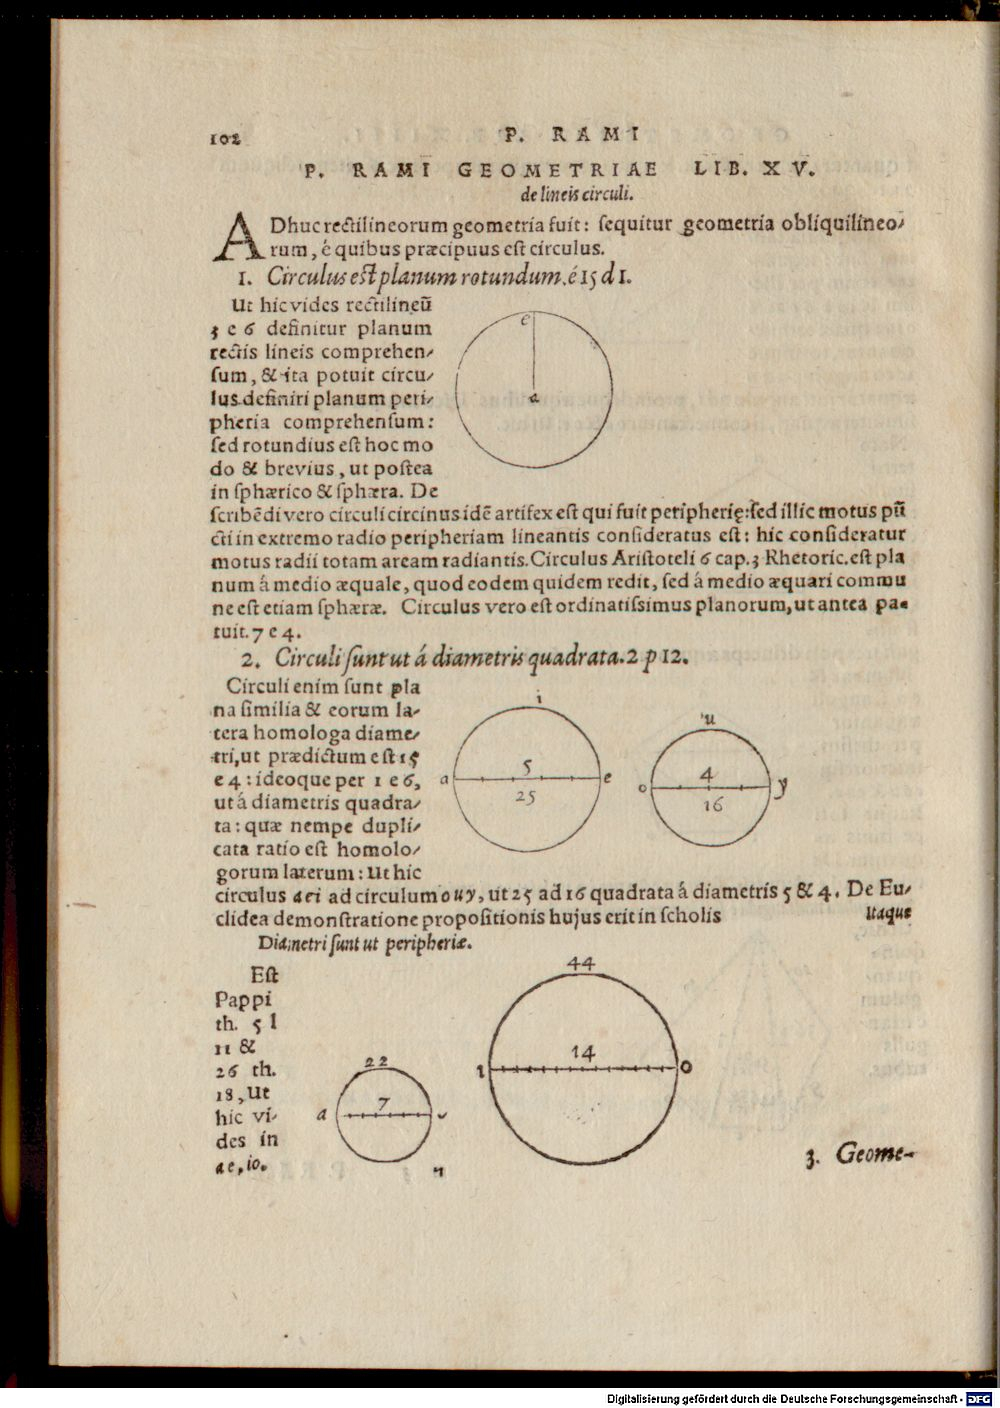 102
P. RAMI
P. RAMI GEOMETRIAE LIB. XV.
de lineis circuli.
ADhuc rectilineorum geometria fuit: sequitur geometria obliquilineo-
rum, é quibus præcipuus est circulus.
1. Circulus est planum rotundum. é 15 d 1.
Ut hic vides rectilineũ
3 e 6 definitur planum
rectis lineis comprehen-
sum, & ita potuit circu-
lus definiri planum peri-
pheria comprehensum:
sed rotundius est hoc mo
do & brevius, ut postea
in sphærico & sphæra. De
e
a
scribẽdi vero circuli circinus idẽ artifex est qui fuit peripherię: sed illic motus pũ
cti in extremo radio peripheriam lineantis consideratus est: hic consideratur
motus radii totam aream radiantis. Circulus Aristoteli 6 cap. 3 Rhetoric. est pla
num á medio æquale, quod eodem quidem redit, sed á medio æquari commu
ne est etiam sphæræ. Circulus vero est ordinatissimus planorum, ut antea pa-
tuit. 7 e 4.
2. Circuli sunt ut á diametris quadrata. 2 p 12.
Circuli enim sunt pla
na similia & eorum la-
tera homologa diame-
tri, ut prædictum est 15
e 4: ideoque per 1 e 6,
ut á diametris quadra-
ta: quæ nempe dupli-
cata ratio est homolo-
gorum laterum: Ut hic
i
a 5 e
25
u
o 4 y
16
circulus aei ad circulum ouy, ut 25 ad 16 quadrata á diametris 5 & 4. De Eu-
clidea demonstratione propositionis hujus erit in scholis
Itaque
Diametri sunt ut peripheriæ.
Est
Pappi
th. 5 l
11 &
26 th.
18, Ut
hic vi-
des in
ae, io.
22
a 7
44
14
i o
3. Geome-
Digitalisierung gefördert durch die Deutsche Forschungsgemeinschaft - DFG